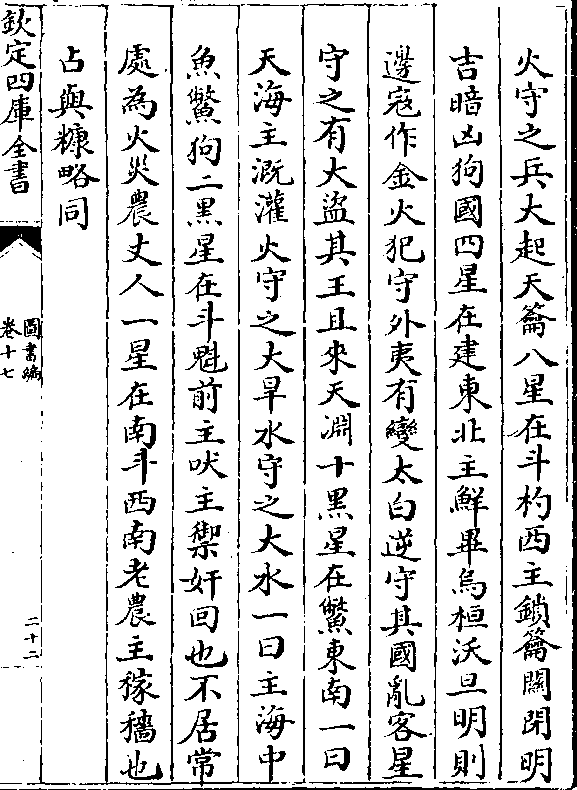 火守之兵大起天籥八星在斗杓西主鎖籥關閉明
吉暗凶狗國四星在建東北主鮮畢烏桓沃旦明則
邊宼作金火犯守外夷有變太白逆守其國亂客星
守之有大盜其王且來天淵十黑星在鱉東南一曰
天海主溉灌火守之大旱水守之大水一曰主海中
魚鱉狗二黑星在斗魁前主吠主禦奸回也不居常
處為火災農丈人一星在南斗西南老農主稼穡也
占與糠略同
欽定四庫全書
圖書編
卷十七
二十二